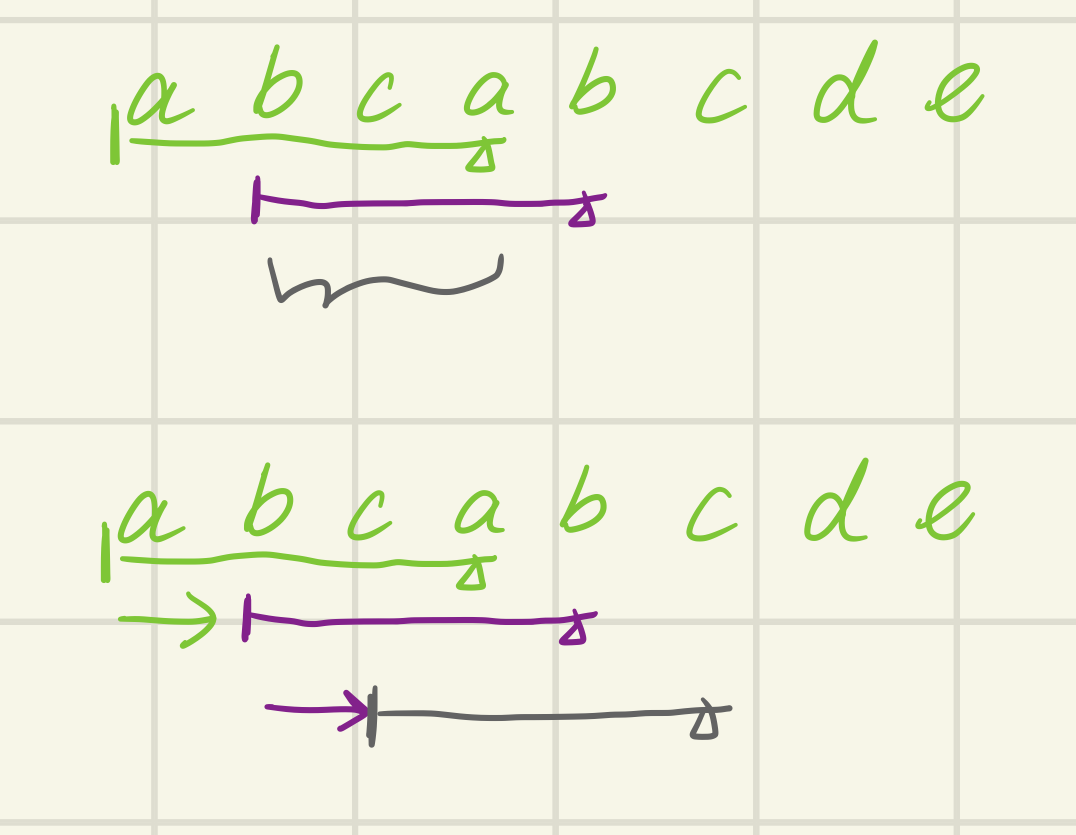 a b c a b c d e
a b c a b c d e